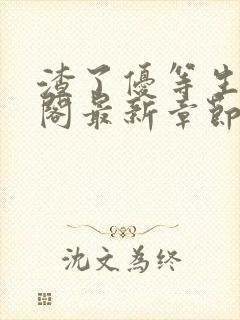 渣了優等生
閣最新章節
沈文為終